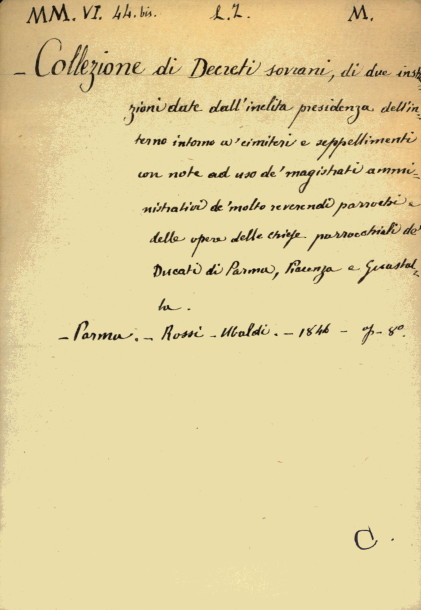 MM. VI. 44. bis. L. Z. M.
- Collezione di Decreti sovrani, di due instr
zioni date dall'inclita presidenza dell'in-
terno intorno a' cimiteri e seppellimenti
con note ad uso de' magistrati ammi-
nistrativi de' molto reverendi parrochi e
delle opere delle chiese parrocchiali de'
Ducati di Parma, Piacenza e Guastal-
la.
- Parma. - Rossi - Ubaldi. - 1846 - op - 8º.
C.